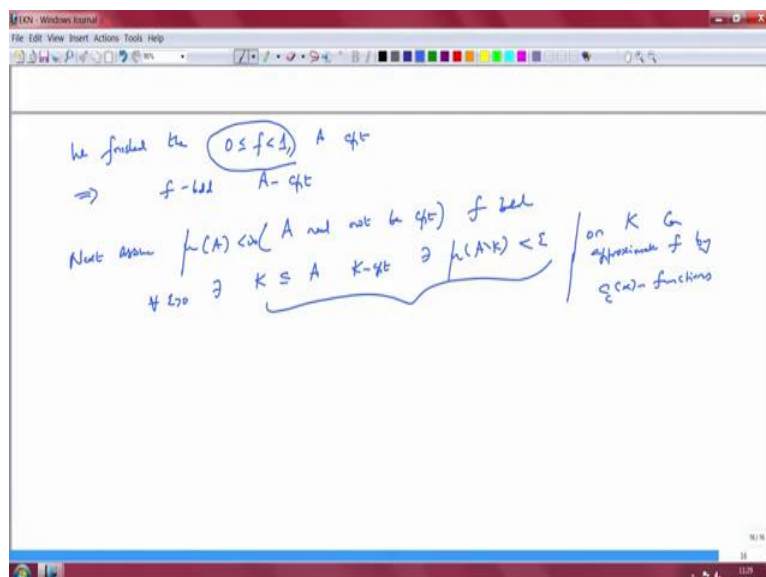 LKN - Windows Journal
File Edit View Insert Actions Tools Help
90%
B I
We finished the 0 ≤ f < 1, A cpt
⇒ f-bdd A-cpt
Next assume μ(A) < ∞ ( A need not be cpt) f bdd
∀ ε>0 ∃ K ⊆ A K-cpt ∋ μ(A∖K) < ε
on K can
approximate f by
C_c(X)-functions
16
11:29